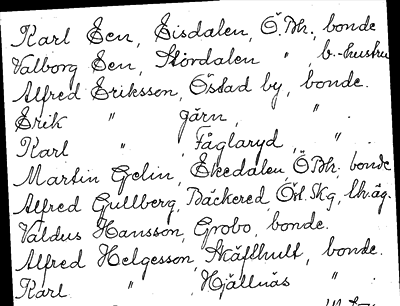 Karl Een, Eisdalen, Ö. Bh., bonde
Valborg Een, Stordalen " b.-hustru
Alfred Eriksson, Östad by, bonde.
Erik " Järn, " .
Karl " Fåglaryd, " .
Martin Gelin, Ekedalen, Ö Bh, bonde
Alfred Gullberg, Bäckered Öst. Skg, lh.äg.
Valdus Hansson, Grobo, bonde.
Alfred Helgesson, Skäfthult, bonde.
Karl " , Hjällnäs " .